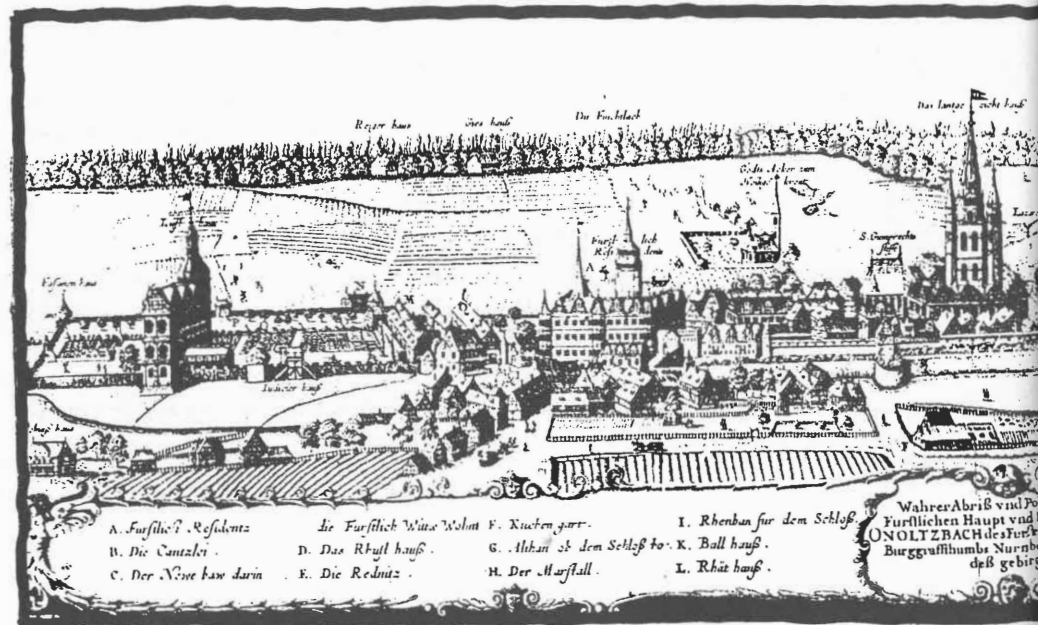 Reger haus
Die Feuchtlach
Gotts Acker zum
Heilige kreutz
Furst lich
Resi dentz
A
S. Gumprechts
stifft
Fasanen haus
A. Furstlich Residentz
B. Die Cantzlei.
C. Der Newe baw darin
die Furstlich Witwe Wohnt
D. Das Rhust hauß.
E. Die Rednitz.
F. Kuchen gart.
G. Althan ob dem Schloß to.
H. Der Marstall.
I. Rhenban fur dem Schloß.
K. Ball hauß.
L. Rhät hauß.
Wahrer Abriß vnd
Furstlichen Haupt vnd
ONOLTZBACH des Furst
Burggraffthumbs Nurnb
deß gebirg